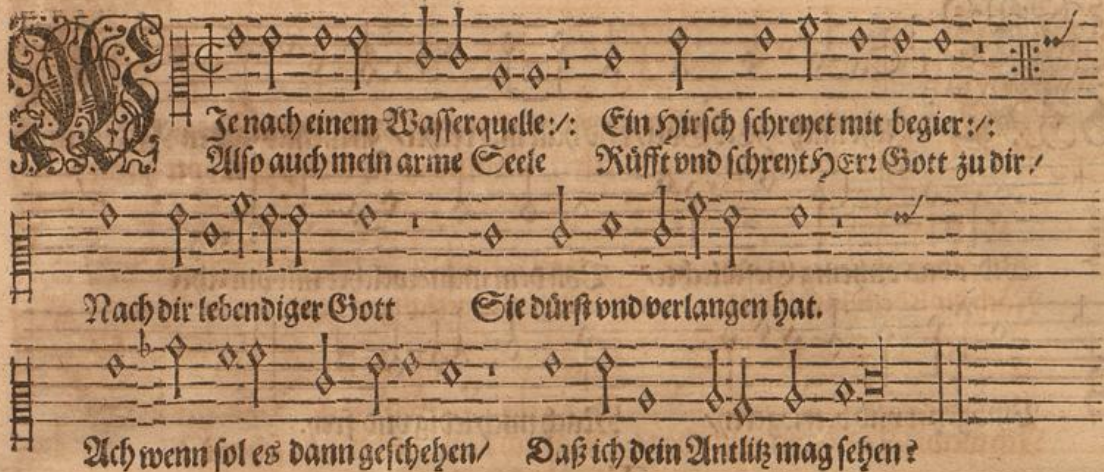 WJe nach einem Wasserquelle:/: Ein Hirsch schreyet mit begier:/:
Also auch mein arme Seele Rüfft vnd schreyt HErr Gott zu dir/
Nach dir lebendiger Gott Sie dürst vnd verlangen hat.
Ach wenn sol es dann geschehen/ Daß ich dein Antlitz mag sehen?